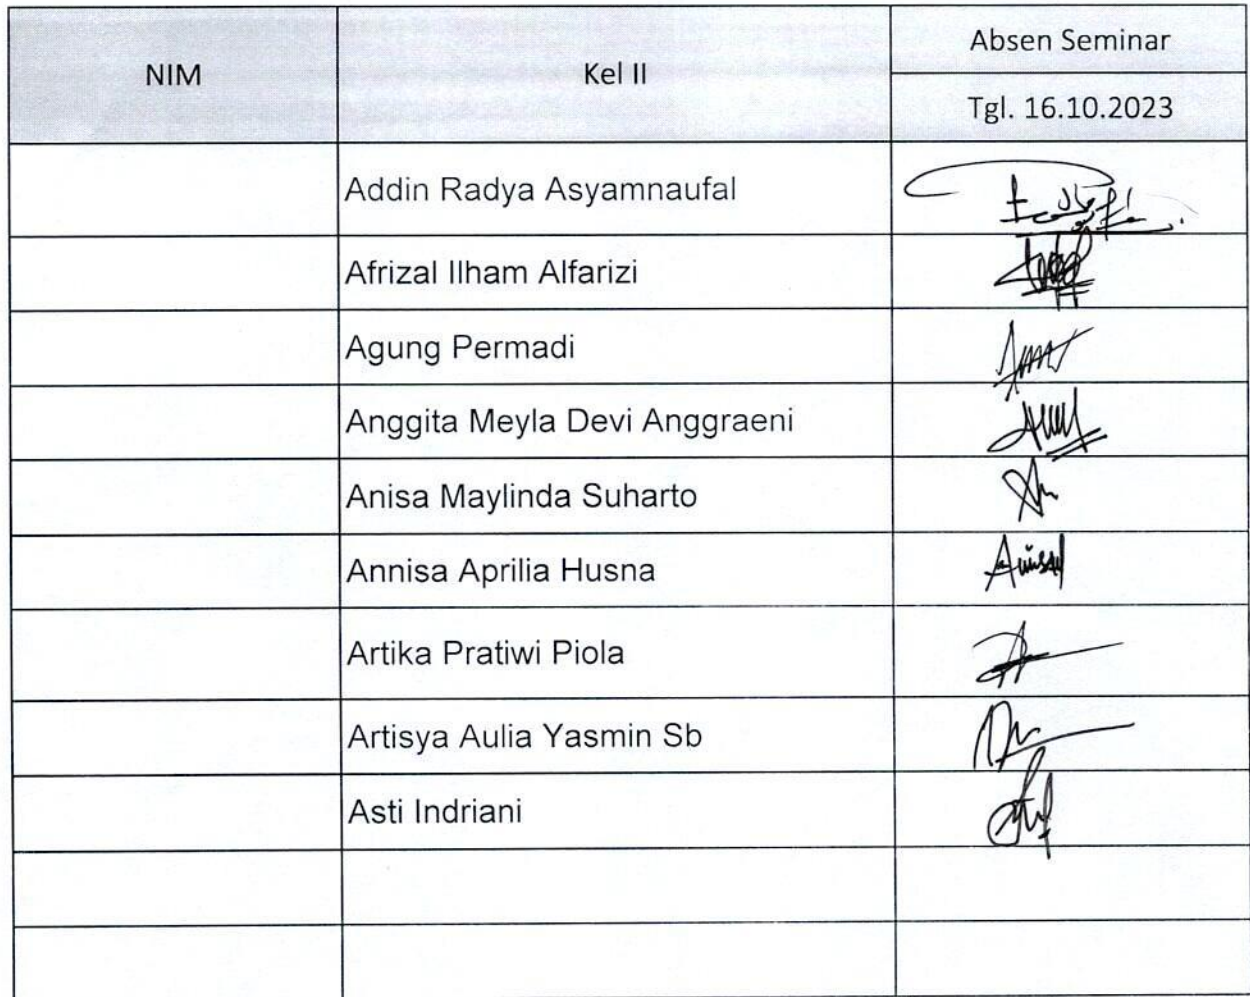 NIM
Kel II
Absen Seminar
Tgl. 16.10.2023
Addin Radya Asyamnaufal
Afrizal Ilham Alfarizi
Agung Permadi
Anggita Meyla Devi Anggraeni
Anisa Maylinda Suharto
Annisa Aprilia Husna
Artika Pratiwi Piola
Artisya Aulia Yasmin Sb
Asti Indriani